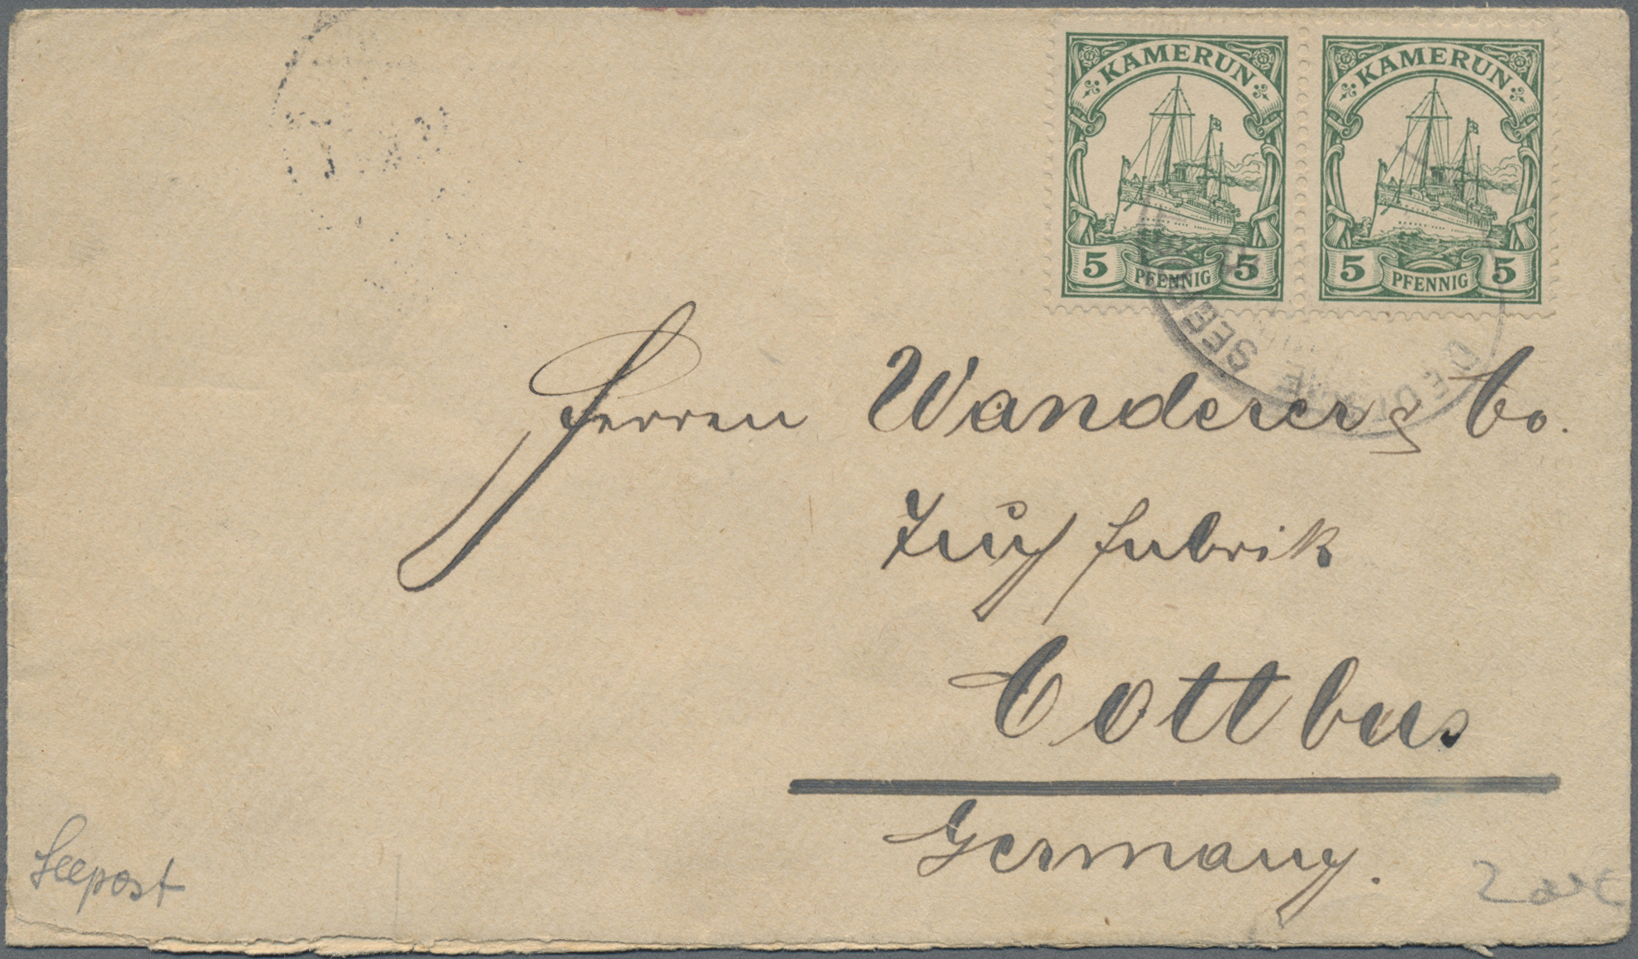 KAMERUN KAMERUN
5 PFENNIG 5 5 PFENNIG 5
DEUTSCHE SEEPOST
Herren Wanderer & Co.
Tuchfabrik
Cottbus
Germany.
Seepost